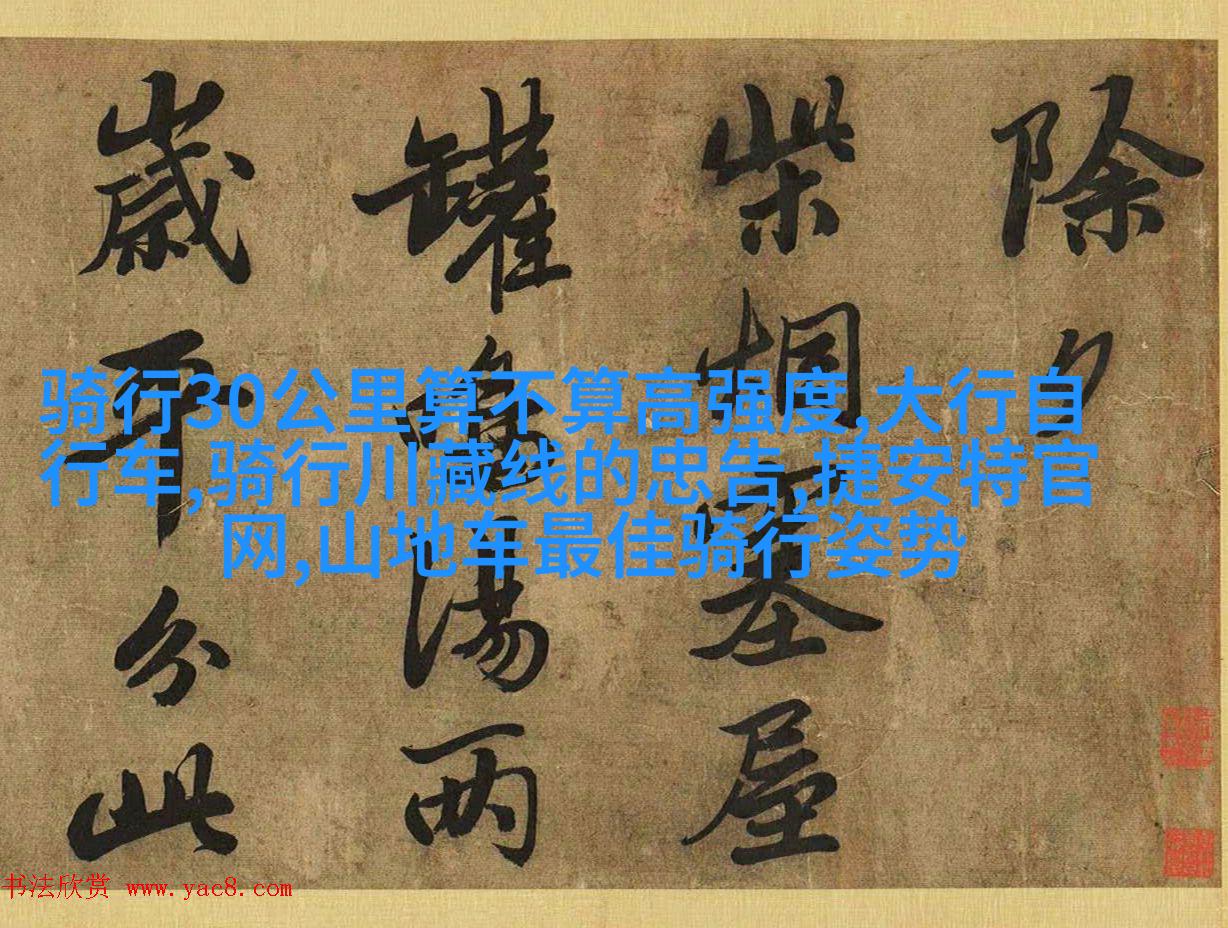 除夕
柴烟塞屋
罐鳴湯两
歲平分此
骑行30公里算不算高强度,大行自
行车,骑行川藏线的忠告,捷安特官
网,山地车最佳骑行姿势
书法欣赏 www.yac8.com